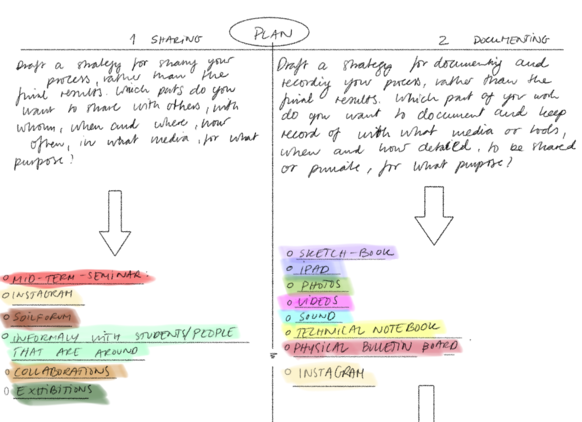 PLAN
1 SHARING
Draft a strategy for sharing your
process, rather than the
final results. Which parts do you
want to share with others, with
whom, when and where, how
often, in what media, for what
purpose?
MID-TERM-SEMINAR.
INSTAGRAM
SOILFORUM
INFORMALY WITH STUDENTS/PEOPLE
THAT ARE AROUND
COLLABORATIONS
EXHIBITIONS
2 DOCUMENTING
Draft a strategy for documenting and
recording your process, rather than the
final results. Which part of your work
do you want to document and keep
record of with what media or tools,
when and how detailed, to be shared
or private, for what purpose?
SKETCH-BOOK
IPAD
PHOTOS
VIDEOS
SOUND
TECHNICAL NOTEBOOK
PHYSICAL BULLETIN BOARD
INSTAGRAM